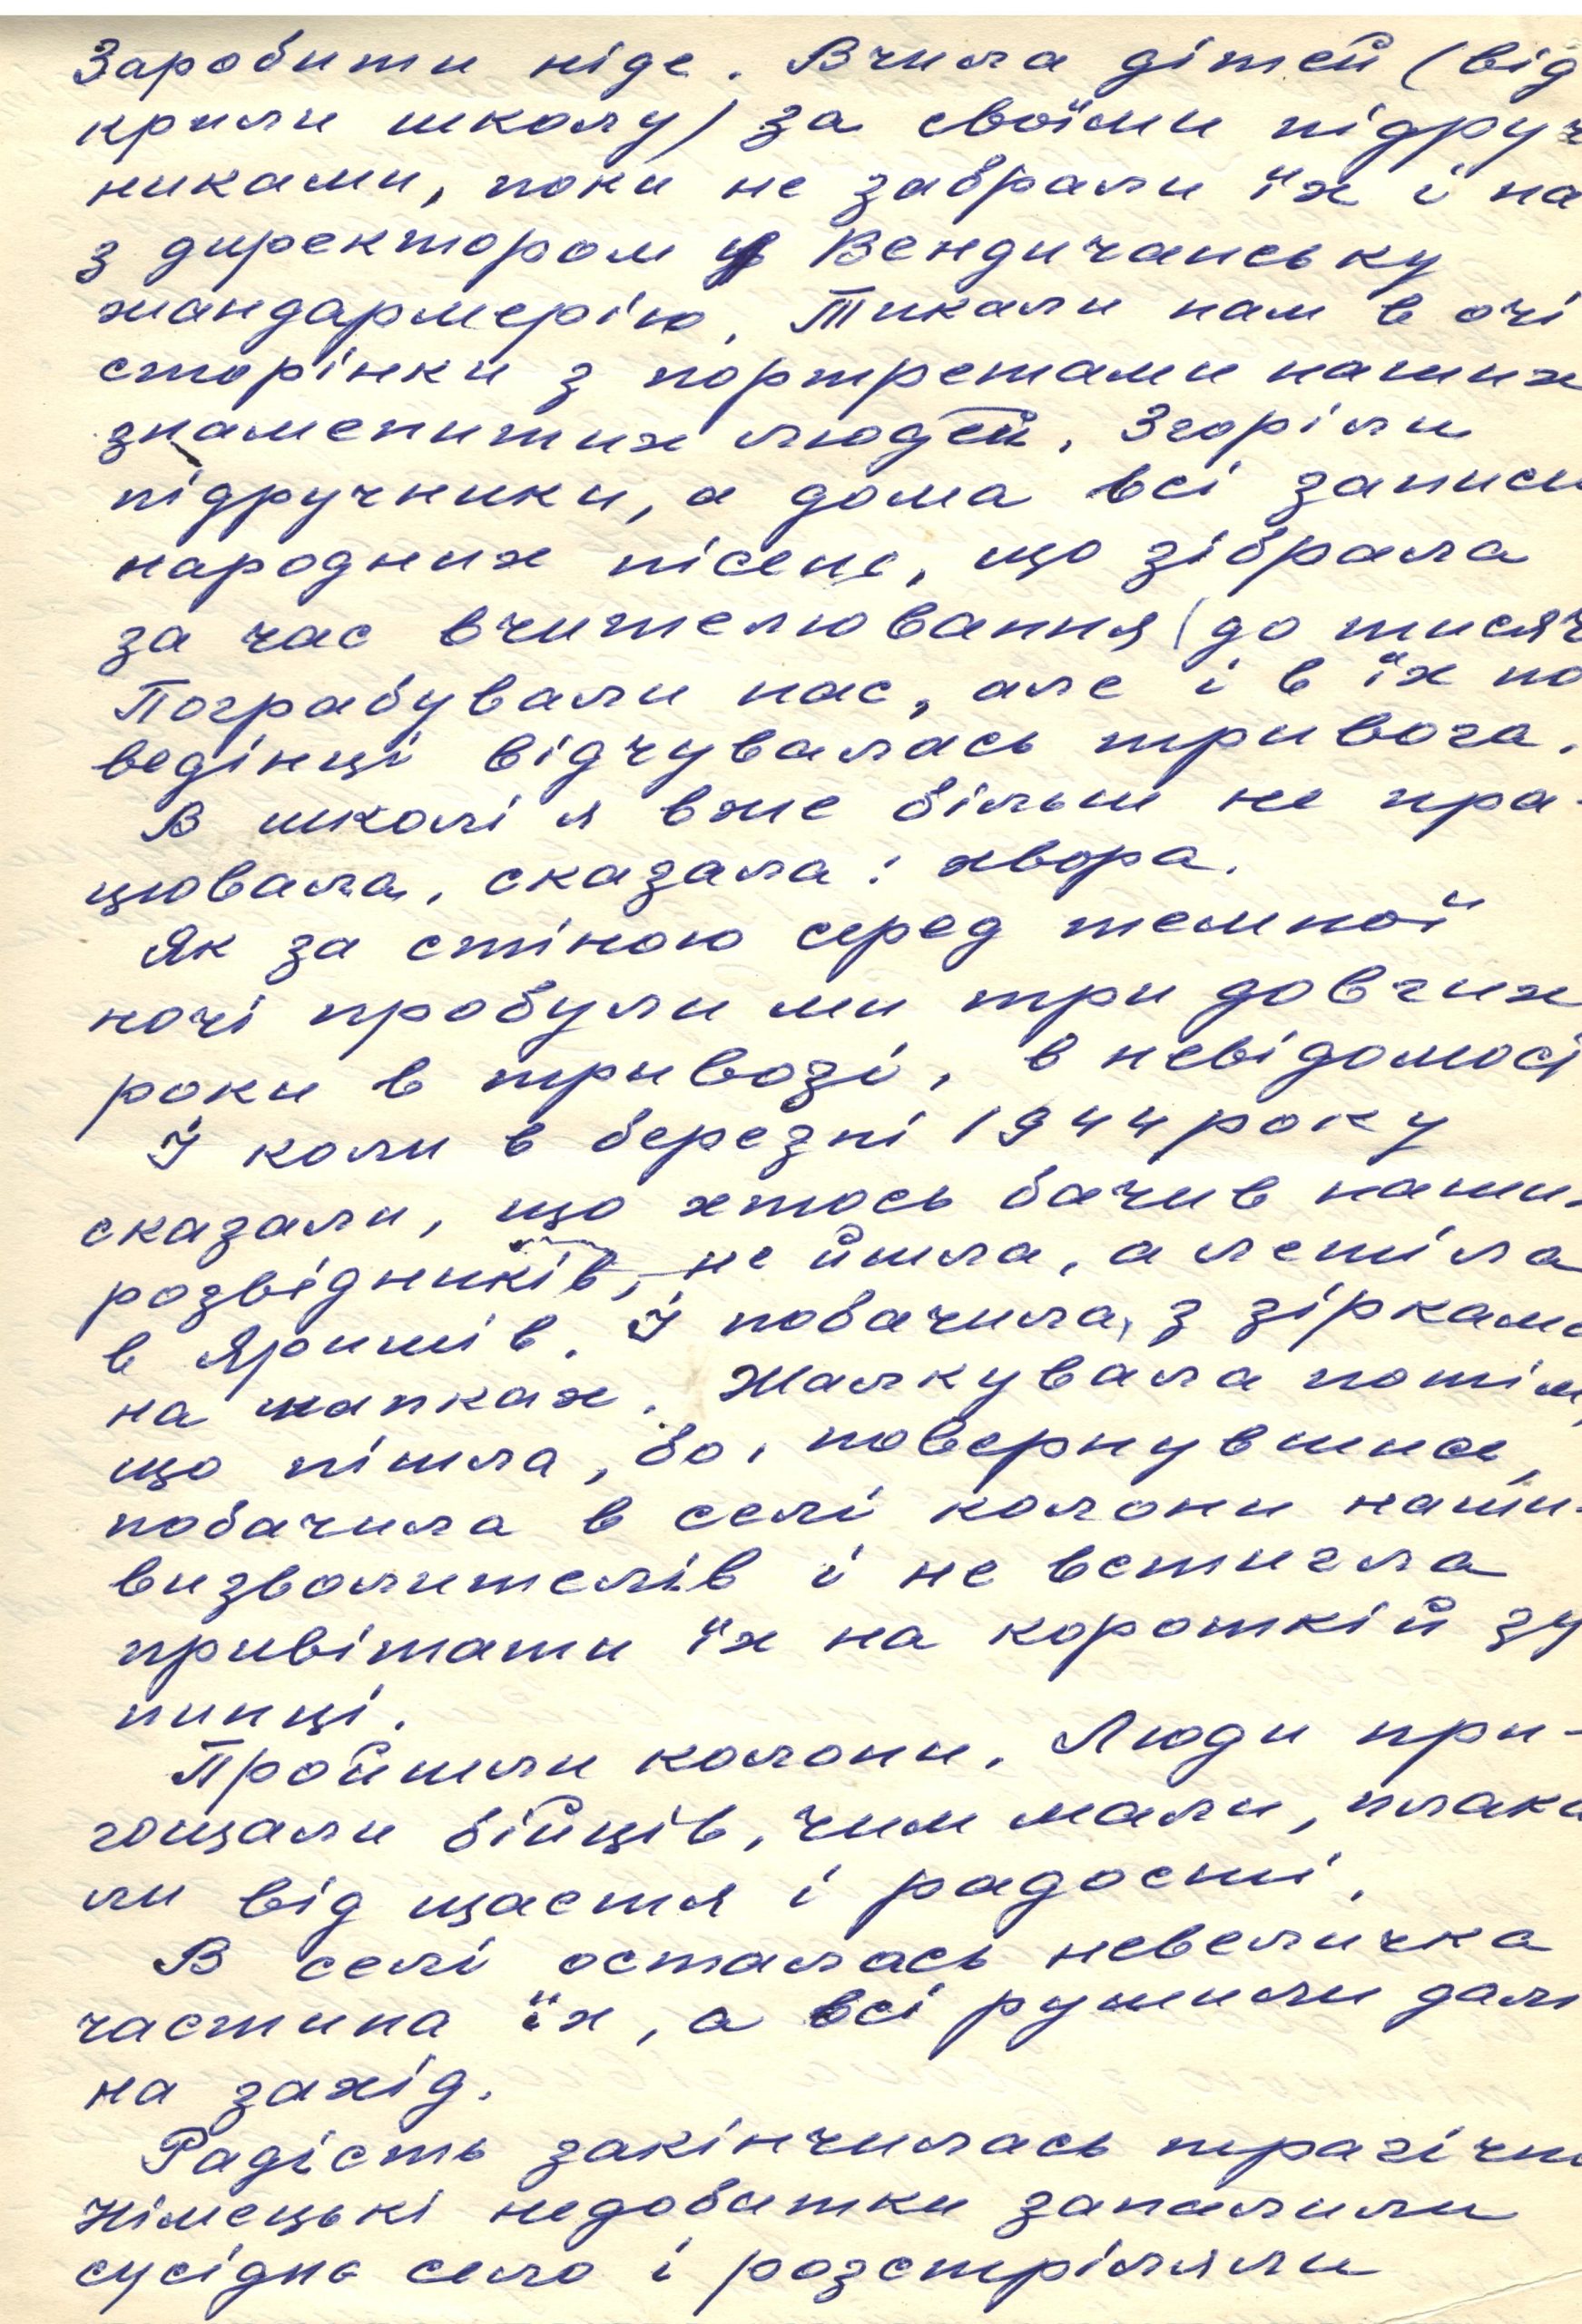 Заробити ніде. Вчила дітей (від
крили школу) за своїми підруч
никами, поки не забрали їх і на
з директором в Вендичанську
жандармерію. Тикали нам в очі
сторінки з портретами наших
знаменитих людей. Згоріли
підручники, а дома всі записи
народних пісень, що зібрала
за час вчителювання (до тисяч
Пограбували нас, але і в їх по
ведінці відчувалась тривога.
В школі я вже більш не пра-
цювала, сказала: хвора.
Як за стіною серед темної
ночі пробули ми три довгих
роки в тривозі, в невідомості
І коли в березні 1944 року
сказали, що хтось бачив наших
розвідників, не йшла, а летіла
в Яришів. І побачила, з зірками
на шапках. Жалкувала потім,
що пішла, бо, повернувшися,
побачила в селі колони наши-
визволителів і не встигла
привітати їх на короткій зу
пинці.
Пройшли колони. Люди при-
гощали бійців, чим мали, плака
ли від щастя і радості.
В селі осталась невеличка
частина їх, а всі рушили далі
на захід.
Радість закінчилась трагічно
Німецькі недобитки запалили
сусіднє село і розстріляли